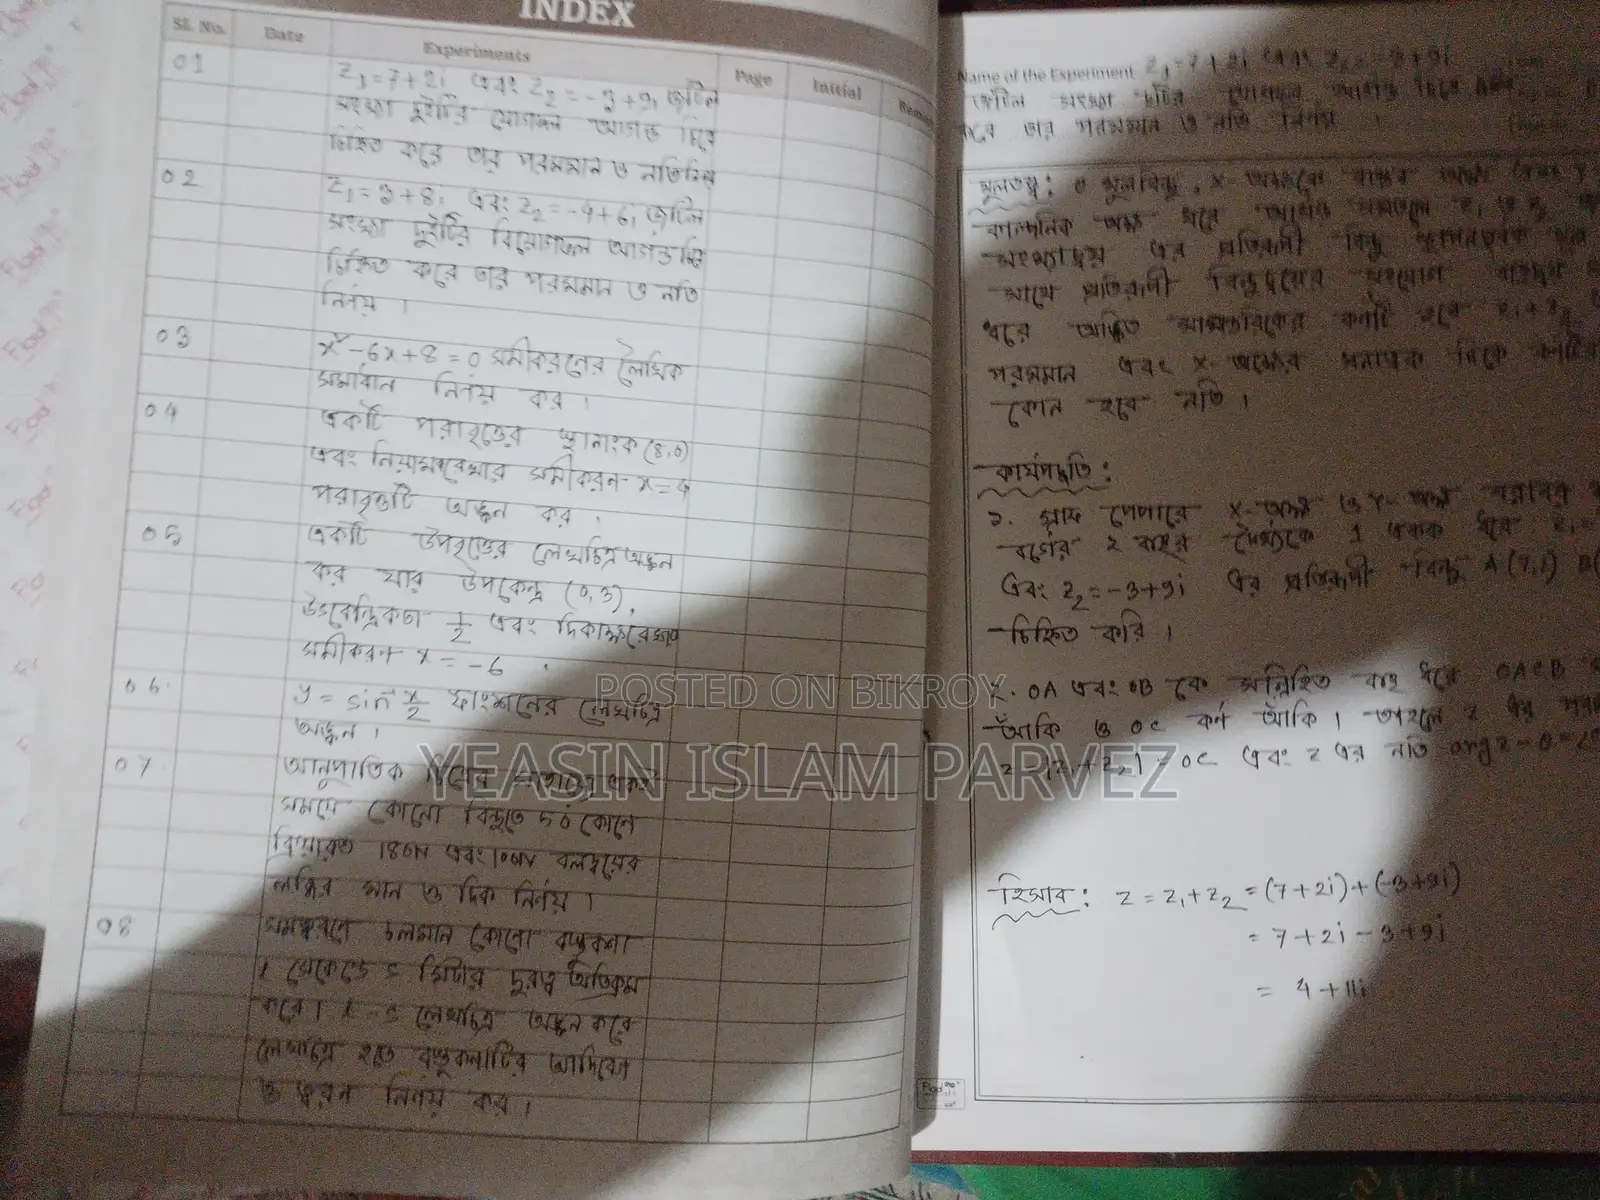 INDEX
Sl. No. Date Experiments Page Initial
01 Z₁=7+2i এবং Z₂=-3+9i জটিল
সংখ্যা দুইটির যোগফল আর্গন্ড চিত্রে
চিহ্নিত করে তার পরমমান ও নতি নির্ণয়
02 Z₁=3+8i এবং Z₂=-4+6i জটিল
সংখ্যা দুইটির বিয়োগফল আর্গন্ড চিত্রে
চিহ্নিত করে তার পরমমান ও নতি
নির্ণয় ।
03 x²-6x+8=0 সমীকরনের লৈখিক
সমাধান নির্ণয় কর ।
04 একটি পরাবৃত্তের স্থানাংক (8,0)
এবং নিয়ামকরেখার সমীকরন x=4
পরাবৃত্তটি অঙ্কন কর ।
05 একটি উপবৃত্তের লেখচিত্র অঙ্কন
কর যার উপকেন্দ্র (0,3),
উৎকেন্দ্রিকতা 1/2 এবং দিকাক্ষরেখার
সমীকরন x=-6
06 y = sin⁻¹ x/2 ফাংশনের লেখচিত্র
অঙ্কন ।
07 আনুপাতিক চিত্রের সাহায্যে একই
সময়ে কোনো বিন্দুতে 50° কোনে
ক্রিয়ারত 180N এবং 100N বলদ্বয়ের
লব্ধির মান ও দিক নির্ণয় ।
08 সমত্বরণে চলমান কোনো বস্তুকণা
t সেকেন্ডে s মিটার দূরত্ব অতিক্রম
করে। t-s লেখচিত্র অঙ্কন করে
লেখচিত্র হতে বস্তুকনাটির আদিবেগ
ও ত্বরন নির্ণয় কর ।
Name of the Experiment Z₁=7+2i এবং Z₂=-3+9i
জটিল সংখ্যা দুটির যোগফল আর্গন্ড চিত্রে
করে তার পরমমান ও নতি নির্ণয় ।
মূলতত্ত্ব: 0 মূলবিন্দু, x-অক্ষকে বাস্তব অক্ষ এবং y
কাল্পনিক অক্ষ ধরে আর্গন্ড সমতলে Z₁ ও Z₂
সংখ্যাদ্বয় এর প্রতিরূপী বিন্দু স্থাপনপূর্বক
সাথে প্রতিরূপী বিন্দুদ্বয়ের সংযোগ বাহুদ্বয়
ধরে অঙ্কিত সামান্তরিকের কর্ণটি হবে Z₁+Z₂
পরমমান এবং x-অক্ষের ধনাত্মক দিকে
কোন হবে নতি ।
কার্যপদ্ধতি:
১. গ্রাফ পেপারে x-অক্ষ ও Y-অক্ষ বরাবর
বর্গের ২ বাহুর দৈর্ঘ্যকে 1 একক ধরে Z₁=
এবং Z₂=-3+9i এর প্রতিরূপী বিন্দু A(7,2) B(
চিহ্নিত করি ।
২. OA এবং OB কে সন্নিহিত বাহু ধরে OACB
আঁকি ও OC কর্ণ আঁকি । তাহলে Z এর
=OC এবং Z এর নতি arg Z = θ = ∠
হিসাব: Z = Z₁+Z₂ = (7+2i)+(-3+9i)
= 7+2i-3+9i
= 4+11i
POSTED ON BIKROY
YEASIN ISLAM PARVEZ